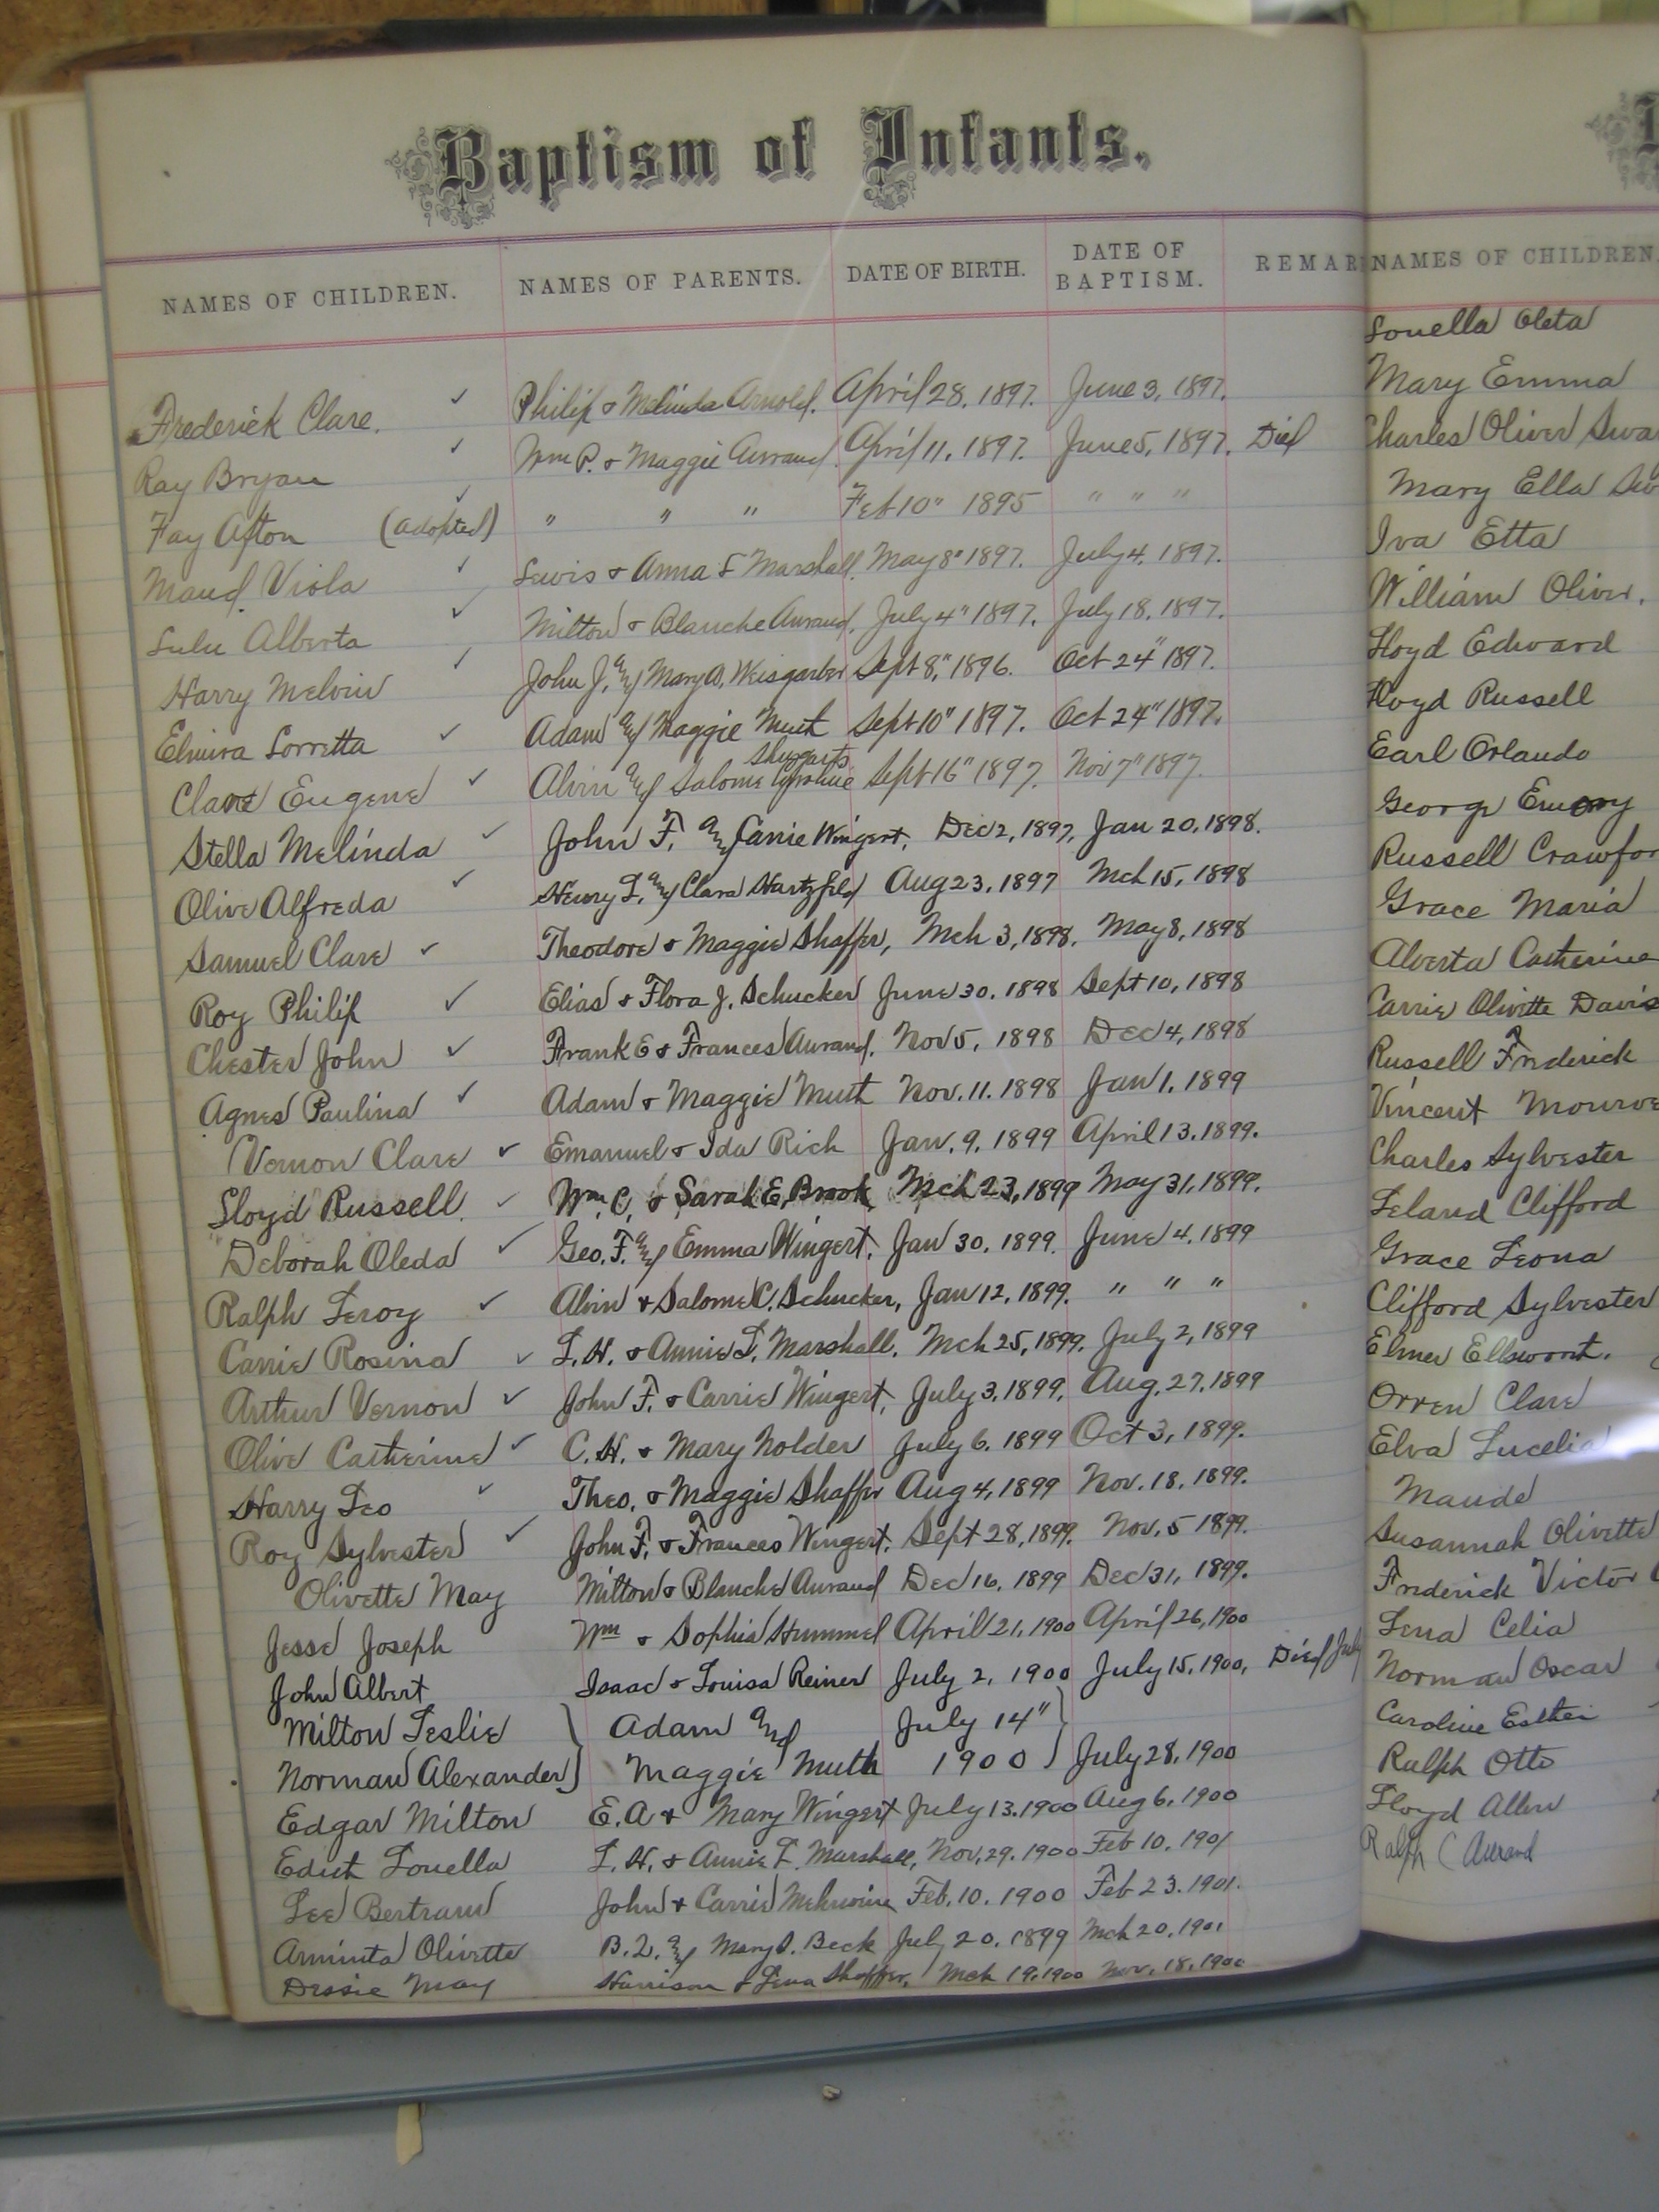 Baptism of Infants.
NAMES OF CHILDREN. NAMES OF PARENTS. DATE OF BIRTH. DATE OF BAPTISM. REMAR
Frederick Clare. ✓ Philip & Melinda Arnold. April 28, 1897. June 3, 1897.
Ray Bryan ✓ Wm P. & Maggie Aurand. April 11, 1897. June 5, 1897. Died
Fay Afton (adopted) ✓ " " " Feb 10" 1895 " " "
Maud Viola ✓ Lewis & Anna L Marshall. May 8" 1897. July 4, 1897.
Lulu Alberta ✓ Milton & Blanche Aurand. July 4" 1897. July 18, 1897.
Harry Melvin ✓ John J. and Mary A. Weisgarber Sept 8," 1896. Oct 24" 1897.
Elmira Lorretta ✓ Adam and Maggie Muth Sept 10" 1897. Oct 24" 1897.
Shugarts
Clare Eugene ✓ Alvin and Salome Caroline Sept 16" 1897. Nov 7" 1897.
Stella Melinda ✓ John F. and Carrie Wingert. Dec 2, 1897, Jan 20, 1898.
Olive Alfreda ✓ Henry L. and Clara Hartzfeld Aug 23, 1897 Mch 15, 1898
Samuel Clare ✓ Theodore & Maggie Shaffer, Mch 3, 1898. May 8, 1898
Roy Philip ✓ Elias & Flora J. Schucker June 30. 1898 Sept 10, 1898
Chester John ✓ Frank E & Frances Aurand. Nov 5, 1898 Dec 4, 1898
Agnes Paulina ✓ Adam & Maggie Muth Nov. 11. 1898 Jan 1. 1899
Vernon Clare ✓ Emanuel & Ida Rich Jan. 9. 1899 April 13. 1899.
Lloyd Russell ✓ Wm. C. & Sarah E. Brook Mch 23, 1899 May 31, 1899.
Deborah Oleda ✓ Geo. F. and Emma Wingert. Jan 30, 1899. June 4, 1899
Ralph Leroy ✓ Alvin & Salome C. Schucker, Jan 12, 1899. " " "
Carrie Rosina ✓ L. H. & Annie L. Marshall. Mch 25, 1899. July 2, 1899
Arthur Vernon ✓ John F. & Carrie Wingert, July 3, 1899, Aug. 27, 1899
Olive Catherine ✓ C. H. & Mary Nolder July 6. 1899 Oct 3, 1899.
Harry Leo ✓ Theo. & Maggie Shaffer Aug 4, 1899 Nov. 18, 1899.
Roy Sylvester ✓ John F. & Frances Wingert. Sept 28, 1899. Nov. 5 1899.
Olivette May Milton & Blanche Aurand Dec 16, 1899 Dec 31, 1899.
Jesse Joseph Wm & Sophia Hummel April 21, 1900 April 26, 1900
John Albert Isaac & Louisa Reiner July 2, 1900 July 15, 1900, Died July
Milton Leslie } Adam and July 14" }
Norman Alexander } Maggie Muth 1900 } July 28, 1900
Edgar Milton E. A & Mary Wingert July 13. 1900 Aug 6, 1900
Edith Louella L. H. & Annie L. Marshall, Nov. 29. 1900 Feb 10. 1901
Lee Bertram John & Carrie Feb. 10. 1900 Feb 23. 1901.
Aminta Olivette B. L. and Mary A. Beck July 20. 1899 Mch 20, 1901
Dessie May Harrison & Lena Shaffer. Mch 19, 1900 Nov. 18, 1900
NAMES OF CHILDREN.
Louella Oleta
Mary Emma
Charles Oliver Swa
Mary Ella Sw
Iva Etta
William Oliver.
Lloyd Edward
Floyd Russell
Earl Orlando
George Emory
Russell Crawfor
Grace Maria
Alverta Catherine
Carrie Olivette Davis
Russell Frederick
Vincent Monroe
Charles Sylvester
Leland Clifford
Grace Leona
Clifford Sylvester
Elmer Ellsworth.
Orren Clare
Elva Lucelia
Maude
Susannah Olivette
Frederick Victor
Lena Celia
Norman Oscar
Caroline Esther
Ralph Otto
Lloyd Allen
Ralph (Aurand